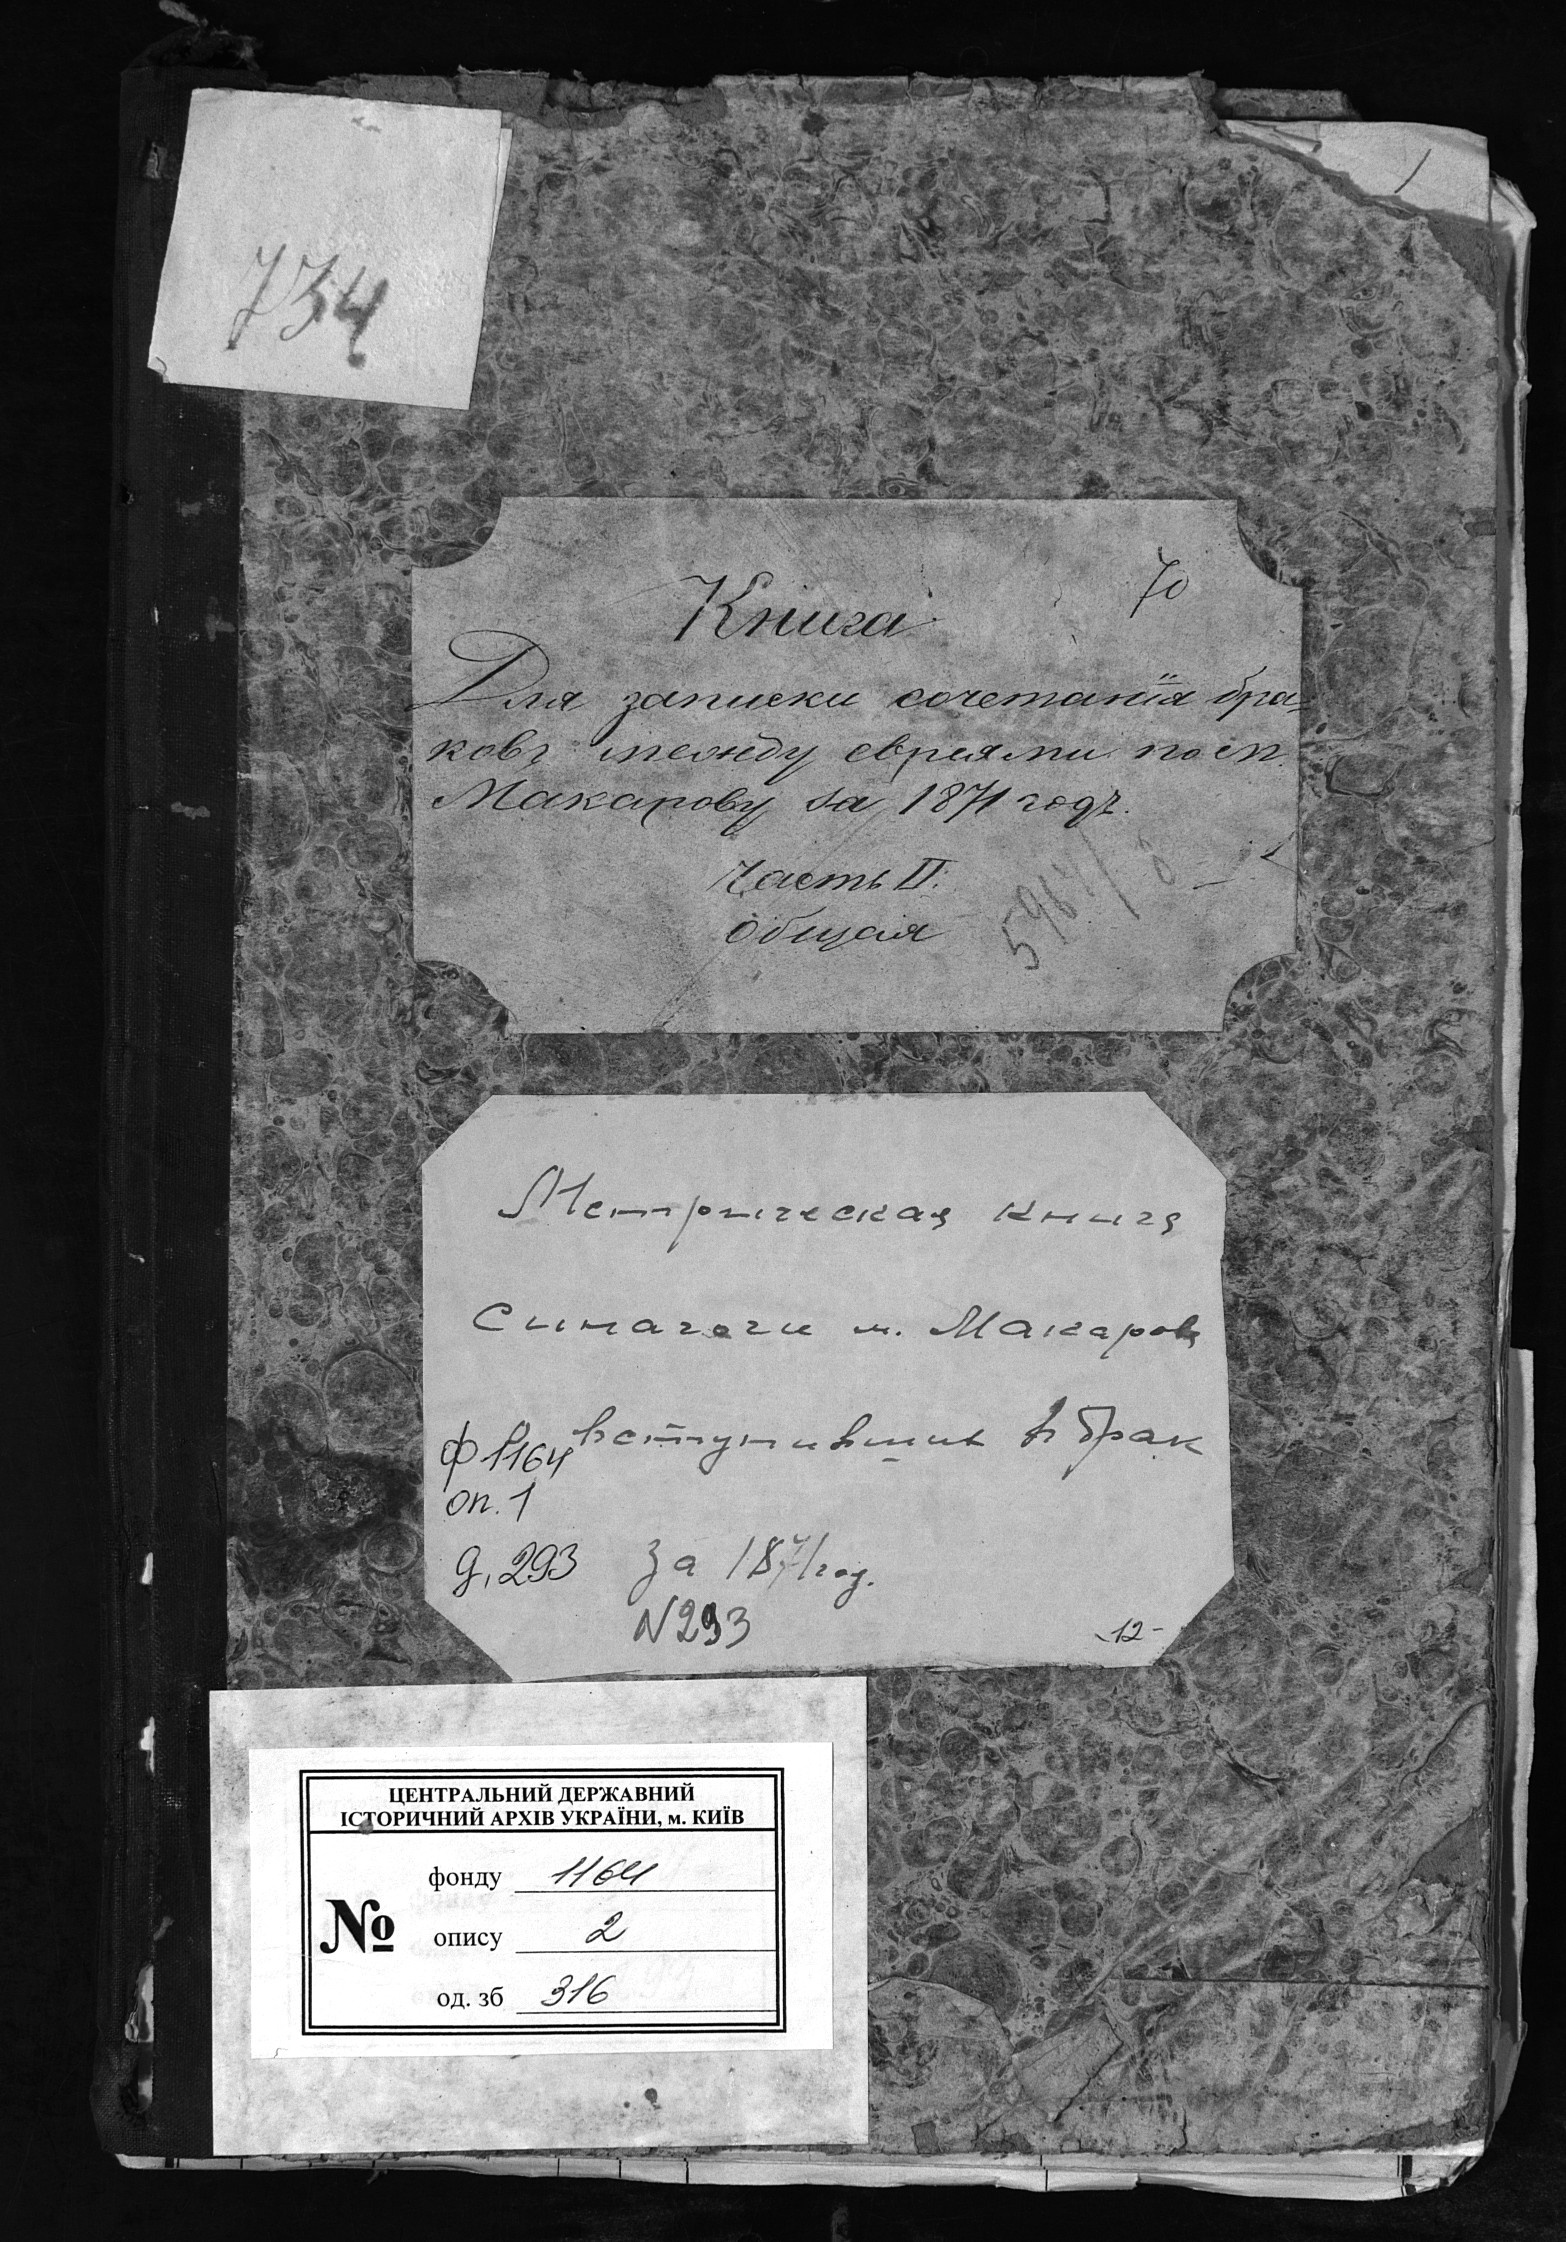 734
1
70
Книга
Для записки сочетанія бра-
ковъ между евреями по м.
Макарову за 1871 годъ.
Часть II.
Общая
Метрическая книга
Синагоги м. Макаров
вступивших в брак
ф 1164
оп. 1
д. 293
за 1871 год.
N 293
-12-
ЦЕНТРАЛЬНИЙ ДЕРЖАВНИЙ
ІСТОРИЧНИЙ АРХІВ УКРАЇНИ, м. КИЇВ
№
фонду 1164
опису 2
од. зб 316